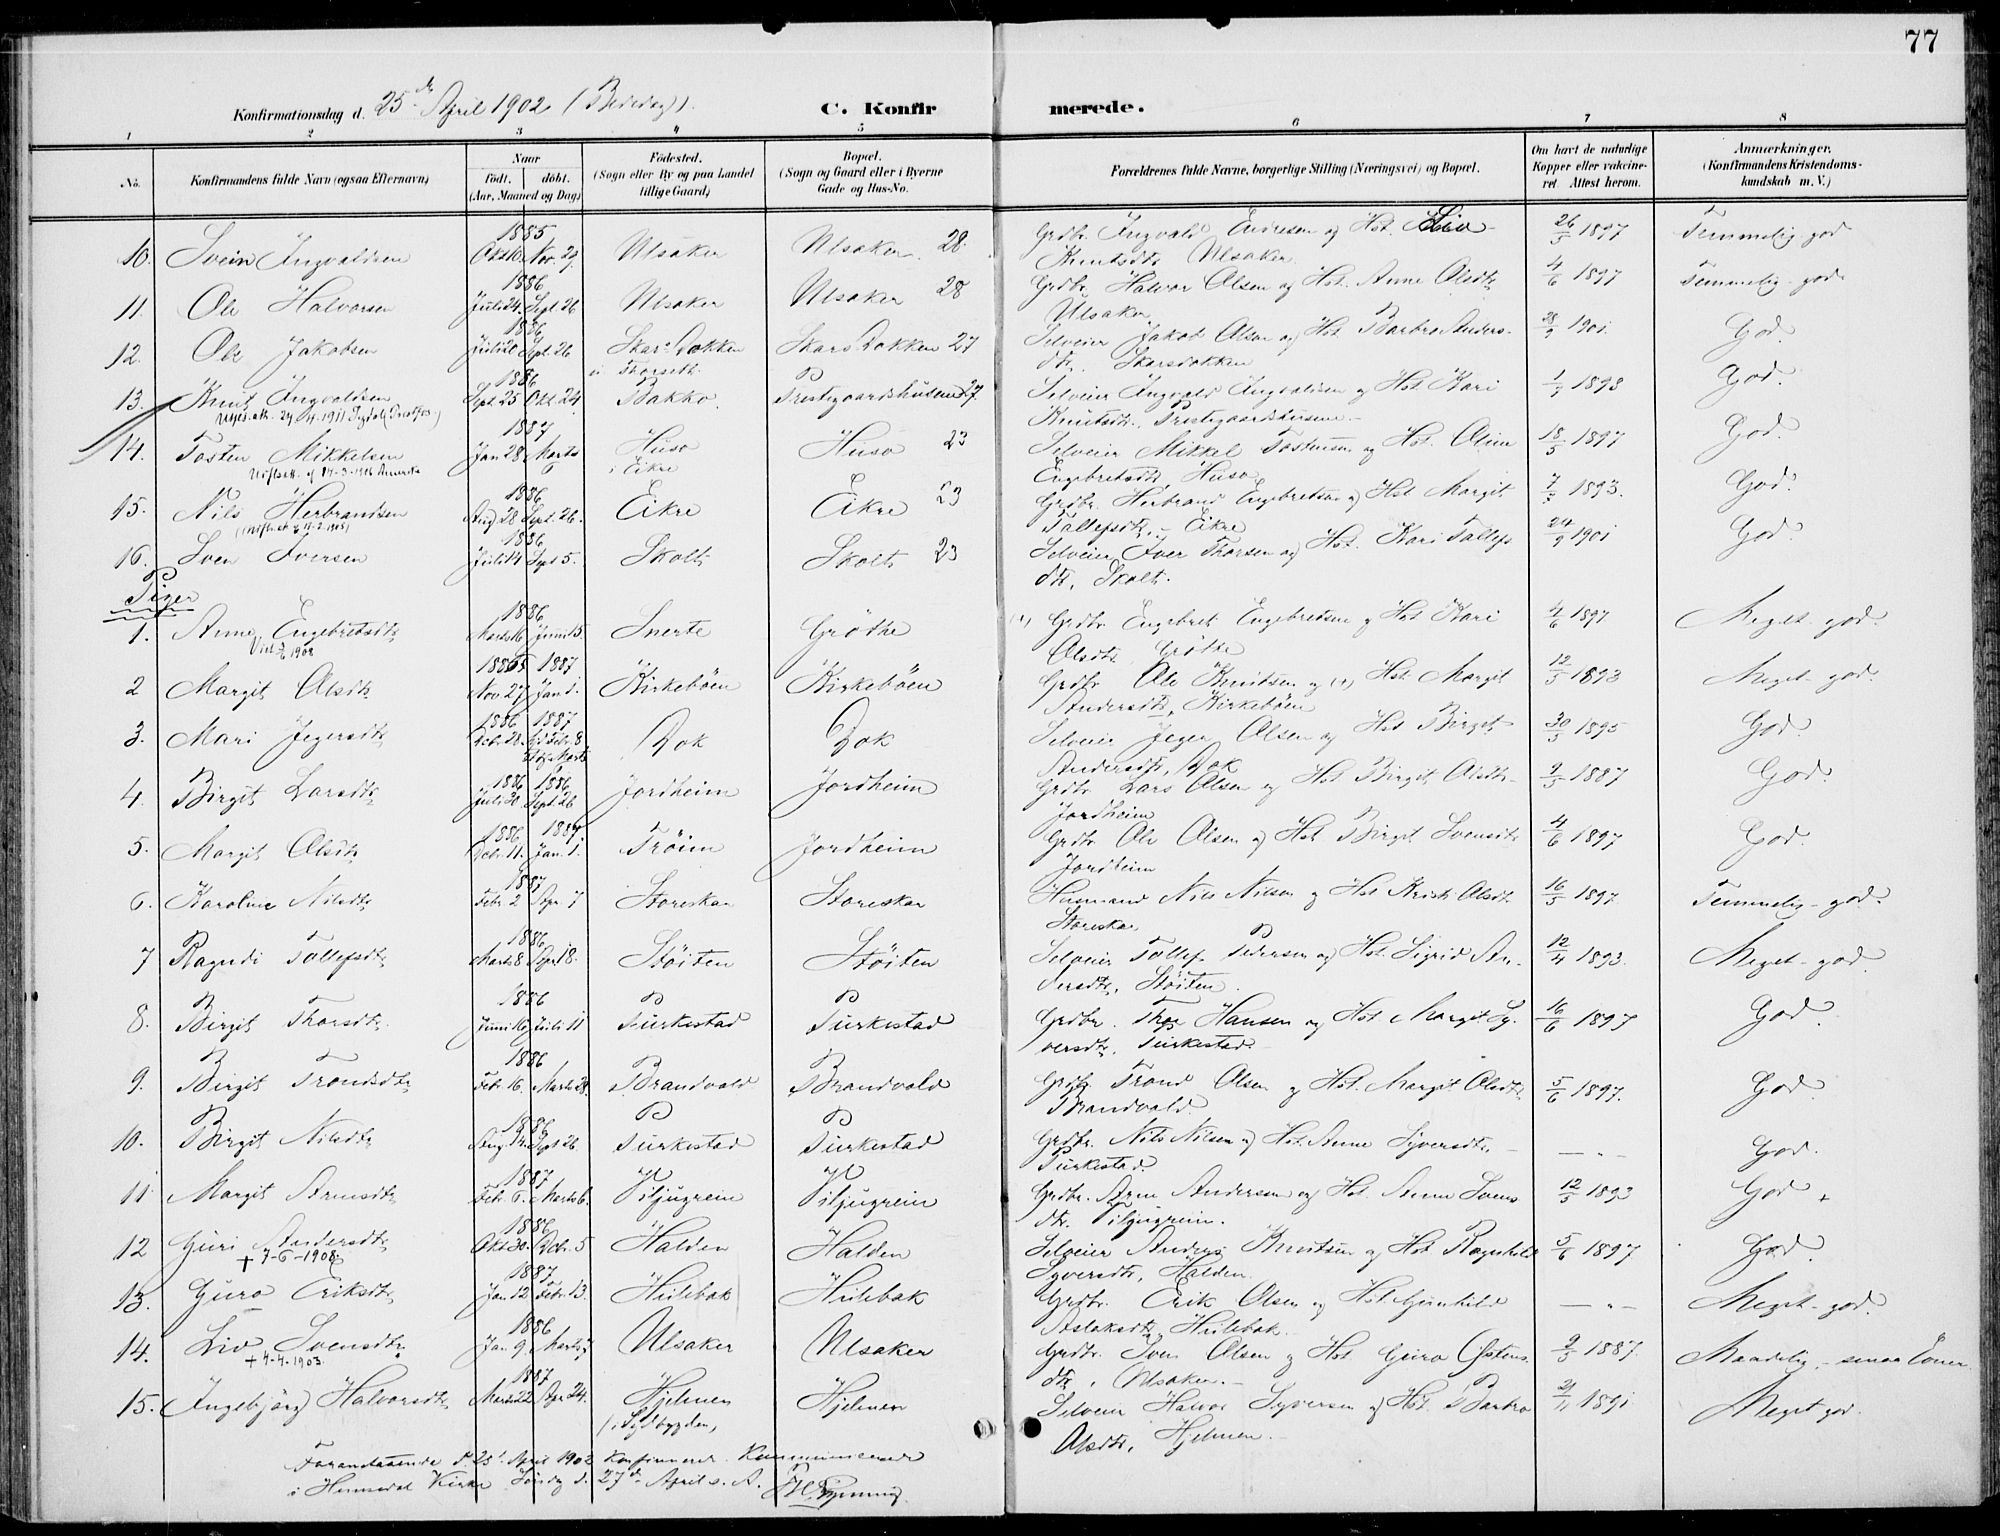 77
Konfirmationsdag d. 25de April 1902 (Bededag).
C. Konfirmerede.
1 2 3 4 5 6 7 8
No. Konfirmandens fulde Navn (ogsaa Efternavn) Naar født. døbt. (Aar, Maaned og Dag) Fødested. (Sogn eller By og paa Landet tillige Gaard) Bopæl. (Sogn og Gaard eller i Byerne Gade og Hus-No. Forældrenes fulde Navne, borgerlige Stilling (Næringsvei) og Bopæl. Om havt de naturlige Kopper eller vakcineret Attest herom. Anmærkninger. (Konfirmandens Kristendomskundskab m. V.)
10. Svein Ingvaldsen 1885 Okt 10. Nov. 29. Ulsaker Ulsaker 28 Grdbr. Ingvald Endresen og Hst. Liv Knutsdtr Ulsaker 26/5 1897 Temmelig god
11. Ole Halvorsen 1886 Juli 24. Sept 26 Ulsaker Ulsaker 28 Grdbr. Halvor Olsen og Hst. Anne Olsdtr Ulsaker 4/6 1897 Temmelig god
12. Ole Jakobsen 1886 Juli 20 Sept. 26 Skarsdokken Skarsdokken 27 Selveier Jakob Olsen og Hst. Barbro Andersdtr. Skarsdokken 28/9 1901 God.
13. Knut Ingvaldsen 1886 Sept. 25 Okt. 24 Bakko i Thorseth Prestegaardshusene 27 Selveier Ingvald Ingvaldsen og Hst Kari Knutsdtr. Prestegaardshusene 1898 God.
14. Tosten Mikkelsen 1887 Jan 28 Marts 6 Huso i Eikre Huso 23 Selveier Mikkel Tostensen og Hst. Oline Engebretsdtr Huso 18/5 1897 God.
Udflatt. af 14-3-1906 Amerika
15. Nils Herbrandsen 1886 Aug 28 Sept. 26. Eikre Eikre 23 Grdbr. Herbrand Engebretsen og Hst. Margit Tollefsdtr. Eikre 1893. God.
16. Sven Iversen 1886 Juli 14 Sept 5. Skolt Skolt 23 Selveier Iver Thorsen og Hst. Kari Tollefsdtr, Skolt. 24/9 1901 God.
Piger
1. Anne Engebretsdtr 1886 Marts 16 Juni 15. Snerte Grøthe Grdbr. Engebret Engebretsen og Hst Kari Olsdtr Grøthe 4/6 1897 Meget god.
2 Margit Olsdtr 1886 1887 Nov. 27 Jan 1. Kirkebøen Kirkebøen Grdbr Ole Knutsen og Hst. Margit Andersdtr, Kirkebøen 12/5 1893 Meget god.
3. Mari Jegersdtr 1886 1887 Decbr. 28. Febr. 8 Dok Dok Selveier Jeger Olsen og Hst Birget Andersdtr, Dok 30/5 1895 God.
4. Birgit Larsdtr 1886 1886 Juli 20. Sept. 26 Jordheim Jordheim Grdbr Lars Olsen og Hst. Birgit Olsdtr Jordheim 2/5 1887 God.
5. Margit Olsdtr 1886 1887 Dcbr. 11. Jan. 1. Trøim Jordheim Grdbr Ole Olsen og Hst Birgit Svensdtr Jordheim 4/6 1897 God.
6. Karoline Nilsdtr 1887 Febr. 2 Apr. 7 Storeskar Storeskar Husmand Nils Nilsen og Hst Kristi Olsdtr. Storeskar 16/5 1897 Temmelig god.
7 Ragndi Tollefsdtr 1886 Marts 8 Apr 18. Støiten Støiten Selveier Tollef Pedersen og Hst. Sigrid Andersdtr, Støiten. 12/4 1893. Meget god.
8. Birgit Thorsdtr. 1886 Juni 16 Juli 11 Purkestad Purkestad Grdbr. Thor Hansen og Hst. Margit Syversdtr. Purkestad. 16/6 1897 God.
9. Birgit Trondsdtr 1886 Febr. 16. Marts 28. Brandvold Brandvold Grdbr. Trond Olsen og Hst. Margit Olsdtr Brandvold 5/6 1897. God.
10. Birgit Nilsdtr 1886 Aug. 14 Sept 26. Purkestad Purkestad Grdbr. Nils Nilsen og Hst. Anne Syversdtr. Purkestad. — „ — God.
11 Margit Arnesdtr 1887 Febr. 6. Marts 6. Viljugrein Viljugrein Grdbr. Arne Andersen og Hst. Anne Svensdtr. Viljugrein. 12/5 1893 God +
12 Guri Andersdtr 1886 Okt 30. Dcbr. 5 Halden Halden Selveier Anders Knutsen og Hst Ragnhild Syversdtr, Halden. 5/6 1897 God.
+ 7-6-1908
13. Guro Eriksdtr 1887 Jan 12 Febr. 13. Hulebak Hulebak Grdbr. Erik Olsen og Hst Gunhild Aslaksdtr, Hulebak. — „ — Meget god.
14. Liv Svensdtr 1886 Jan 9. Marts 7 Ulsaker Ulsaker Grdbr. Sven Olsen og Hst Guro Østensdtr. Ulsaker. 2/5 1887. Maadelig, smaa Evner
+ 4-4-1903.
15. Ingebjørg Halvorsdtr 1887 Marts 22 Apr 24. Hjelmen (i Sydbygden) Hjelmen Selveier Halvor Syversen og Hst Barbro Olsdtr, Hjelmen. 21/11 1891 Meget god.
Foranstaaende d. 25de April 1902 Konfirmerede Kommunicerede
i Hemsedal Kirke Søndag d. 27de April s. A.